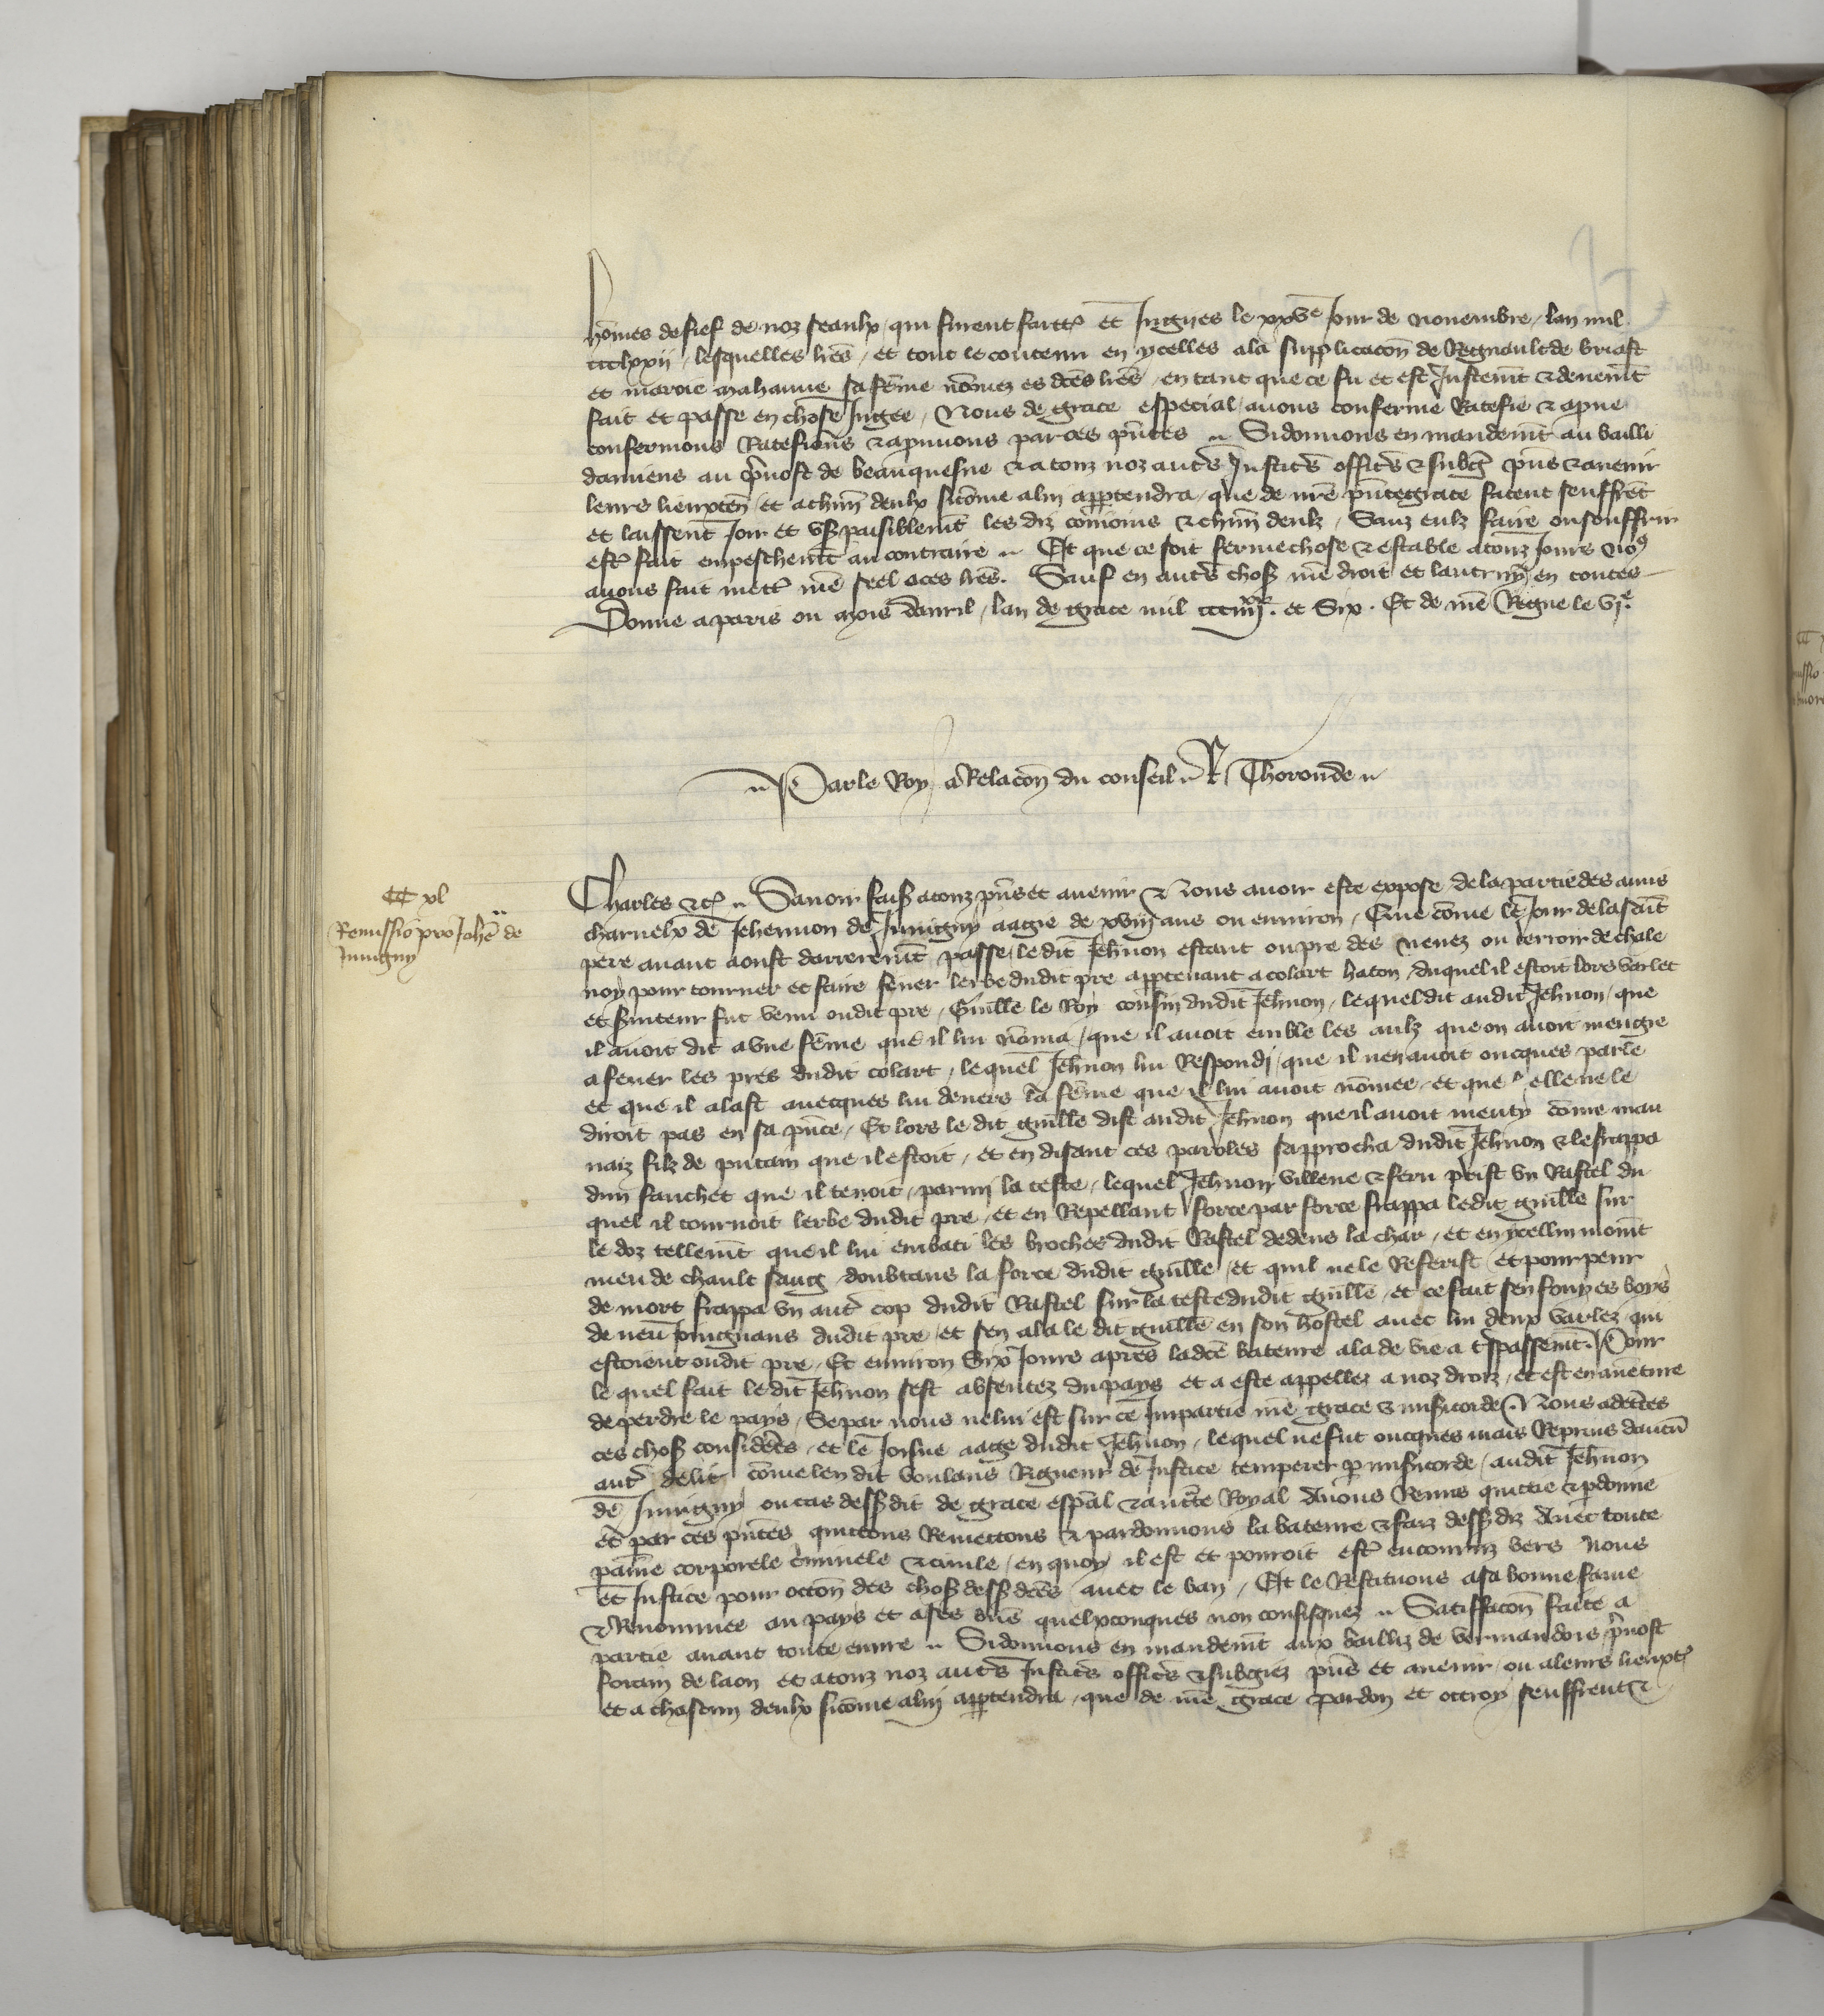 hōmes de fief de noz seaulx qui furent faittes et Jugiees le xxve Jour de nouembre lan mil
ccclxxij lesquelles lrēs et tout le contenu en ycelles ala supplicacōn de Regnault de briast
et maroie mahaune sa fēme nōmez es dcēs lrēs en tant que ce fu et est Justemēt & deuemēt
fait et passe en chose Jugee Nous de grace especial auons conferme Ratefie & apue
confermons Ratefions & apruuons par ces pn̄tes Si donnons en mandemēt au bailli
damiens au p̄uost de beauquesne & a touz noz autrēs Justicēs officēs & subgēz pn̄s & auenir
leurs lieuxten̄ et a chūn deulx sicōme a lui appartendra que de nr̄e pn̄te grace facent seuffrēt
et laissent Joir et vser paisiblemēt les diz cōmoins & chūn deulz Sanz eulz faire ou souffrir
estre fait empeschemēt au contraire Et que ce soit ferme chose & estable a touz Jours no9
auons fait mettre nr̄e seel a ces lrēs. Sauf en autrēs choses nr̄e droit et lautruy en toutes
Donne a paris ou mois dauril lan de grace mil ccc iiijxx. et Six. Et de nr̄e Regne le vje.
Par le Roy a Relacōn du conseil R Thoronde
CC xl
Remissio pro Johē de
Juuigny
Charles &c Sauoir faisons a touz pn̄s et auenir & Nous auoir este expose de la partie des amis
charnelx de Jehennon de Juuigny aagie de xviij ans ou enuiron Que cōme le Jour de la saīt
pere auant aoust darreremēt passe le dit Jehnon estant ou pre des venez ou terroir de chale
noy pour tourner et faire fener lerbe dudit pre appartenant a colart haton duquel il estoit lors varlet
et seruiteur fut venu oudit pre Guille le Roy cousin dudit Jehnon lequel dit audit Jehnon que
il auoit dit a vne fēme que il lui nōma que il auoit emble les aulz que on auoit mengie
a fener les pres dudit colart lequel Jehnon lui Respondi que il nen auoit oncques parle
et que il alast auecques lui deuers la fēme que il lui auoit nōmee et que elle ne le
diroit pas en sa pn̄ce Et lors le dit guille dist audit Jehnon que il auoit menty cōme mau
uaiz filz de putain que il estoit et en disant ces paroles sapprocha dudit Jehnon & le frappa
dun fauchet que il tenoit parmi la teste lequel Jehnon villene & feru prist vn Rastel du
quel il tournoit lerbe dudit pre et en Repellant force par force frappa ledit guille sur
le doz tellemēt que il lui embati les broches dudit Rastel dedens la char et en ycellui momēt
meu de chault sang doubtans la force dudit guille et quil ne le Referist et pour peur
de mort frappa vn autre cop dudit Rastel sur la teste dudit guille et ce fait sen fouy es boys
de neu Joingnans dudit pre et sen ala le dit guille en son hostel auec lui deux varlez qui
estoient oudit pre Et enuiron Six Jours apres ladcē bateure ala de vie a trespassemēt. Pour
lequel fait ledit Jehnon sest absentez du pays et a este appellez a noz droiz et est en auenture
de perdre le pays Se par nous ne lui est sur ce Impartie nr̄e grace & misericorde Nous adcētes
ces choses considerēes et le Joisne aage dudit Jehnon lequel ne fut oncques mais Reprins daucū
autre delit cōme len dit voulans Rigueur de Justice temperer par misericorde audit Jehnon
de Juuigny ou cas dessusdit de grace espāl & aucte Royal Auons Remis quictie & pdonne
et par ces pn̄tes quictons Remectons & pardonnons la bateure & faiz dessusdiz Auec toute
paine corporele criminele & ciuile en quoy il est et pourroit estre encourruz vers Nous
et Justice pour occōn des choses dessusdcēs auec le ban Et le Restituons a sa bonne fame
& Renommee au pays et a ses biēs quelxconques non confisquez Satiffacōn faite a
partie auant toute euure Si donnons en mandemēt aux bailliz de vermandois p̄uost
forain de laon et a touz noz autrēs Justicēs officēs & subgiez pn̄s et auenir ou a leurs lieuxt
et a chascun deulx sicōme a lui appartendra que de nr̄e grace pardon et ottroy seuffrent &